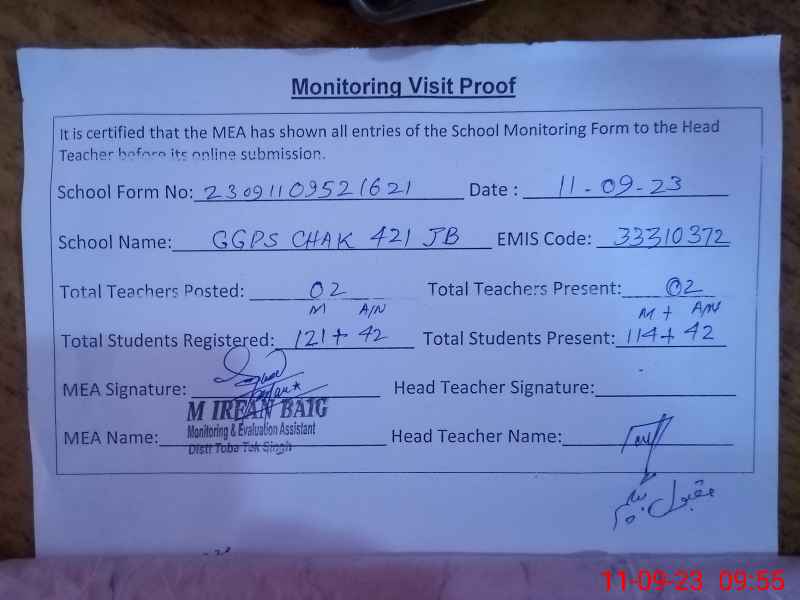 Monitoring Visit Proof
It is certified that the MEA has shown all entries of the School Monitoring Form to the Head
Teacher before its online submission.
School Form No: 23091109521621 Date : 11-09-23
School Name: GGPS CHAK 421 JB EMIS Code: 33310372
Total Teachers Posted: 02 Total Teachers Present: 02
M A/N M + A/N
Total Students Registered: 121+ 42 Total Students Present: 114+ 42
MEA Signature: Head Teacher Signature:
M IRFAN BAIG
MEA Name: Monitoring & Evaluation Assistant Head Teacher Name:
Distt Toba Tek Singh
مقبول بیگم
11-09-23 09:55